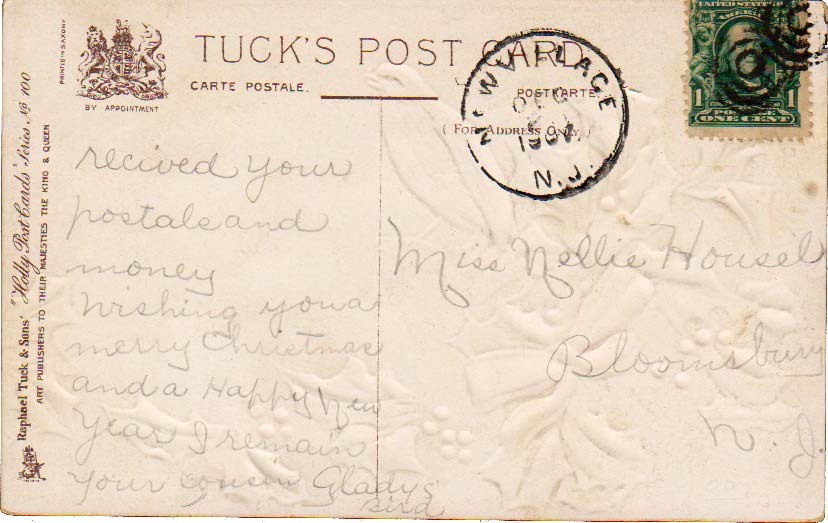 TUCK'S POST CARD
CARTE POSTALE.
POSTKARTE.
(FOR ADDRESS ONLY.)
BY APPOINTMENT
PRINTED IN SAXONY
Raphael Tuck & Sons' "Holly Post Cards" Series No 100
ART PUBLISHERS TO THEIR MAJESTIES THE KING & QUEEN
NEW VILLAGE
DEC
1907
N.J.
UNITED STATES OF AMERICA
1 1
POSTAGE
ONE CENT
recived your
postale and
money
Wishing you a
merry Christmas
and a Happy New
Year I remain
your cousin Gladys
Bird
Miss Nellie Housel
Bloomsbury
N. J.